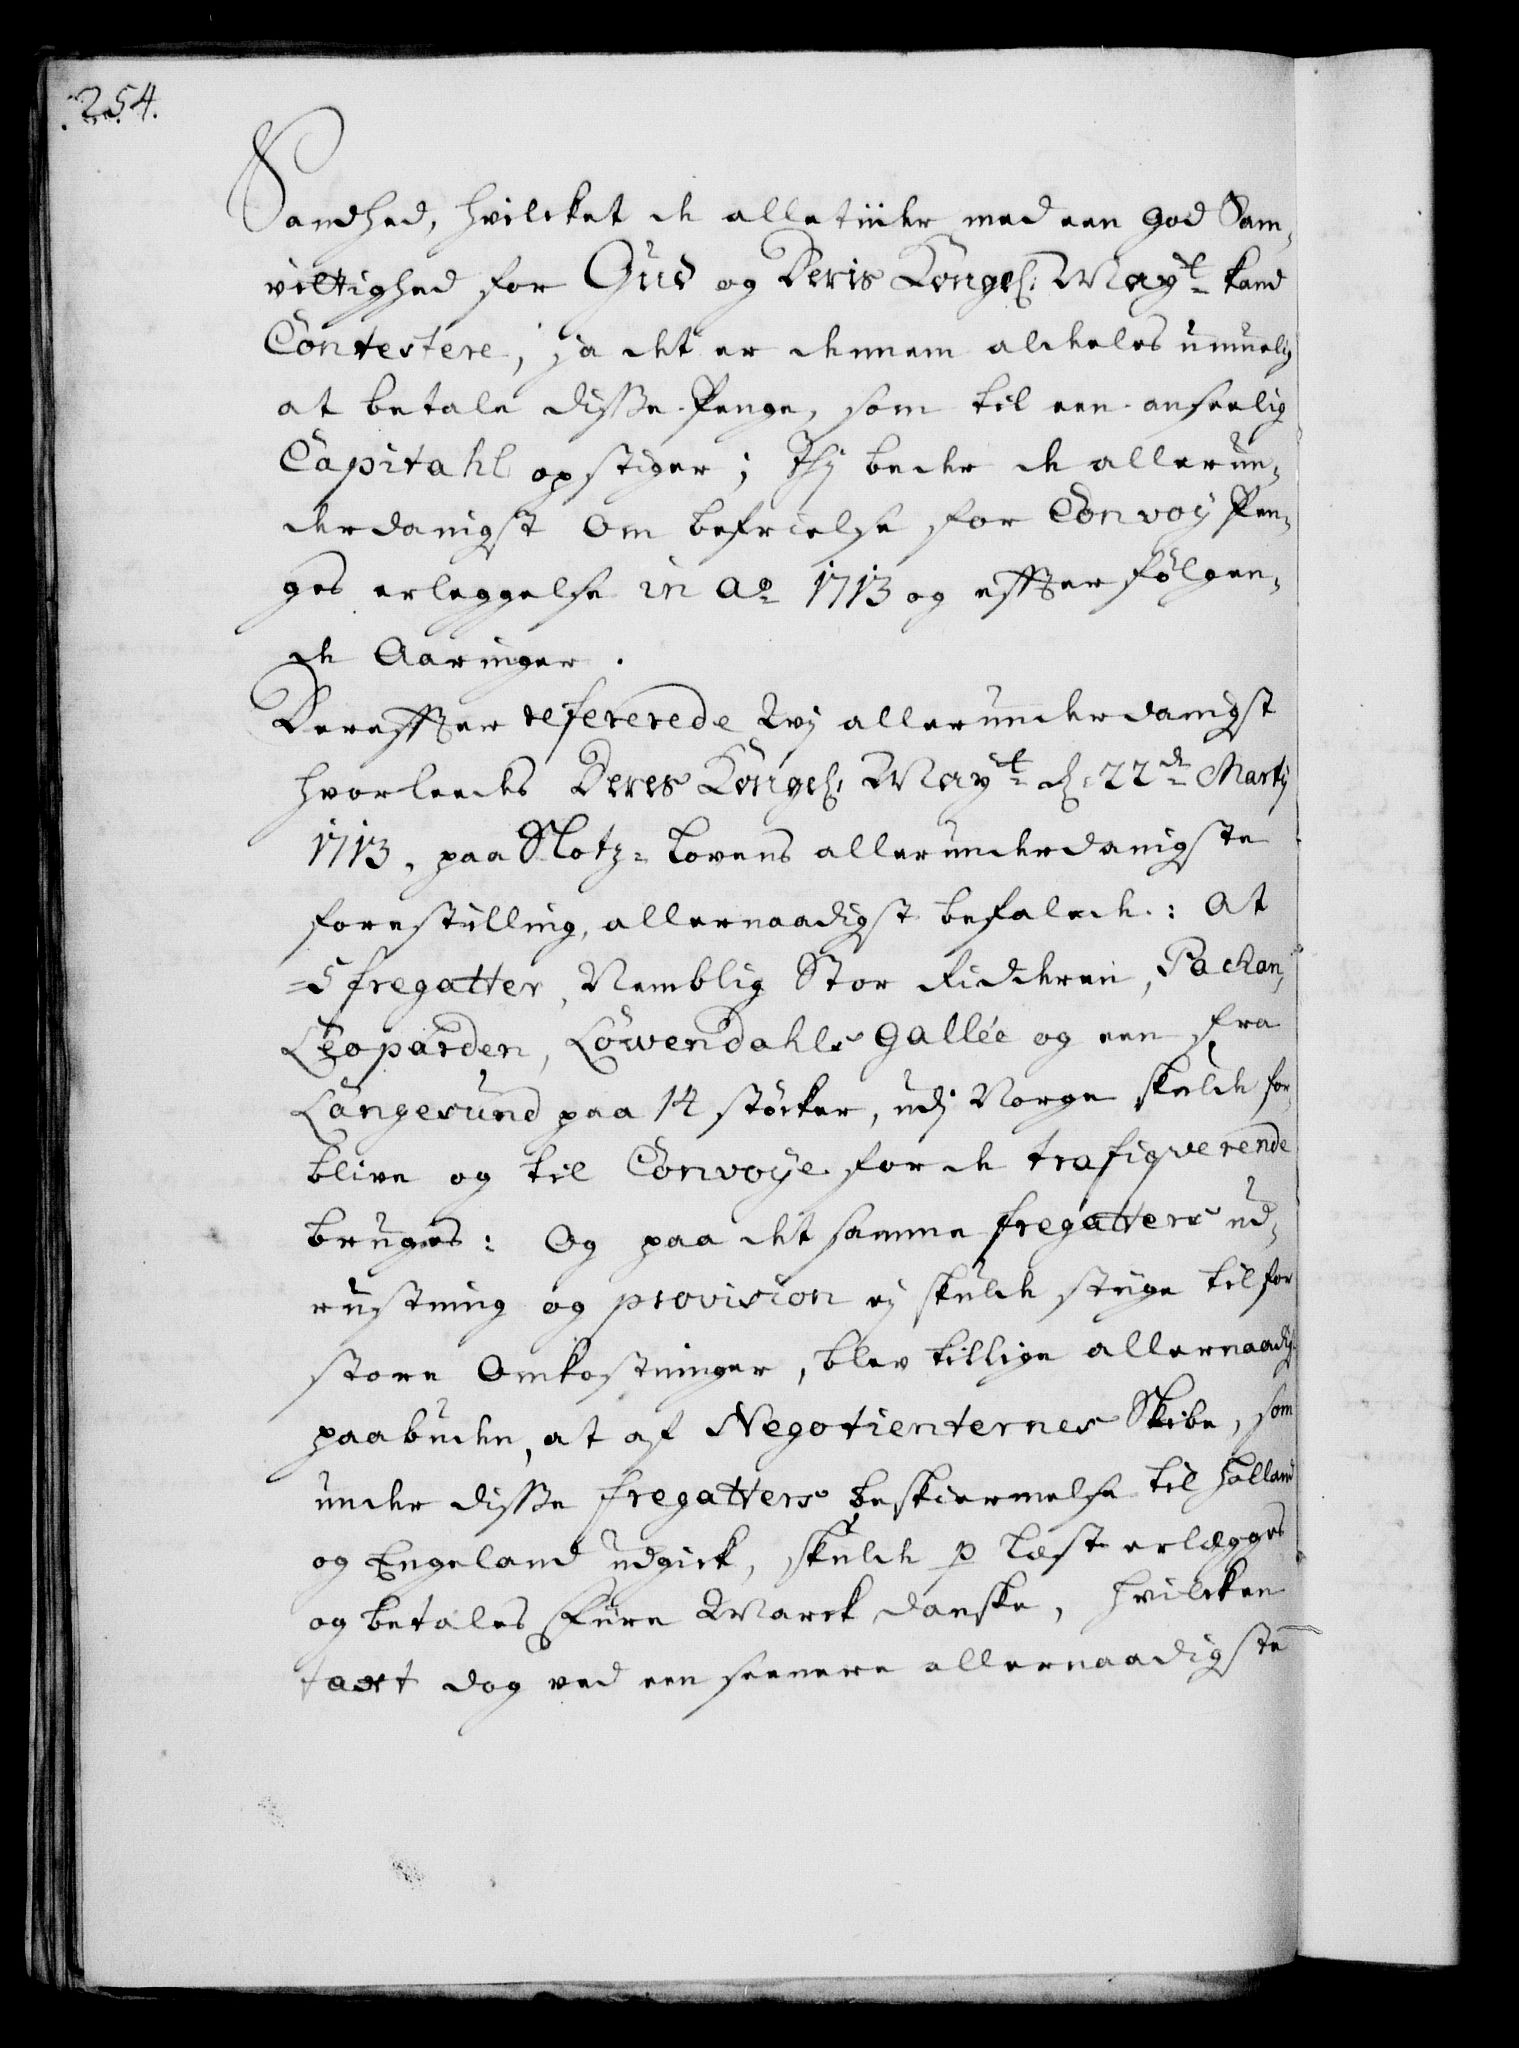 .254.
Sandhed, hvilcket de alletiider med een god Sam-
vittighed for Gud og Deris Kongel: Mayt kand
Contestere, ja det er dennem aldeeles umuelig
at betale disse Penge, som til een anseelig
Capitahl opstiger; Thj beder de allerun-
derdanigst om befrielse for Convoy Pen-
ges erleggelse in Ao 1713 og effter følgen-
de Aaringer.
Dereffter refererede Wij allerunderdanigst
hvorleedes Deres Kongel: Mayt d: 22de Martij
1713, paa Slotz-Lovens allerunderdanigste
forestilling, allernaadigst befalede: At
5 fregatter, Nemblig Stor Ridderen, Packan,
Leoparden, Löwendahls Gallée og een fra
Langesund paa 14 støcker, udj Norge skulde for-
blive og til Convoye for de trafiqverende
bruges: Og paa det samme fregatters ud-
rustning og provision ej skulde stiige til for
store Omkostninger, blev tillige allernaadigst
paabuden, at af Negotienternes Skibe, som
under disse fregatters beskiermelse til Holland
og Engeland udgick, skulde p Læst erlægges
og betales Fiire Marck danske, hvilcken
taxt dog ved een seenere allernaadigste